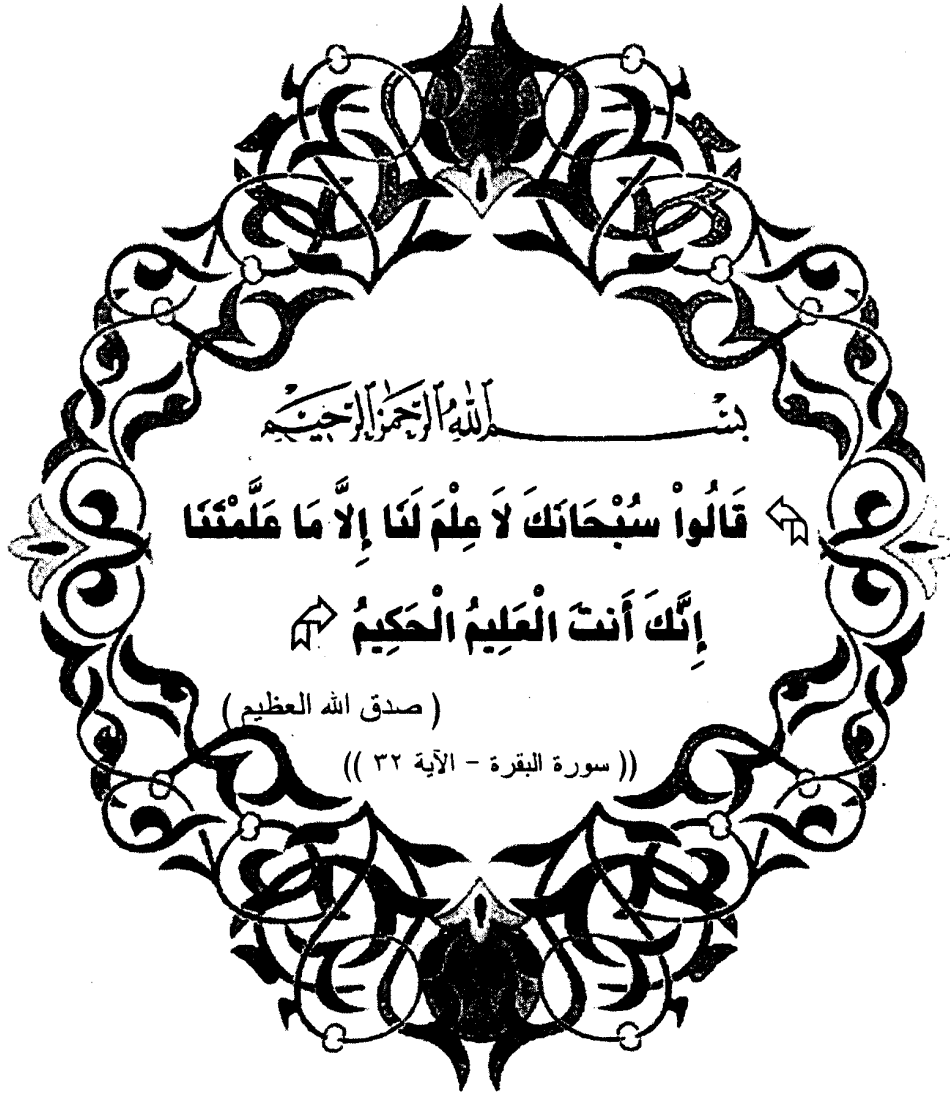 بسم الله الرحمن الرحيم
قَالُواْ سُبْحَانَكَ لاَ عِلْمَ لَنَا إِلاَّ مَا عَلَّمْتَنَا
إِنَّكَ أَنتَ الْعَلِيمُ الْحَكِيمُ
( صدق الله العظيم )
(( سورة البقرة - الآية ٣٢ ))